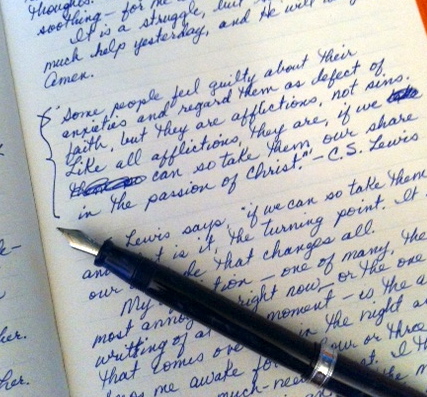 thoughts.
soothing — for me
It is a struggle, but
much help yesterday, and He will
Amen.
"Some people feel guilty about their
anxieties and regard them as defect of
faith, but they are afflictions, not sins.
Like all afflictions, they are, if we
can so take them, our share
in the passion of Christ." — C.S. Lewis
Lewis says, "if we can so take them
and is it, the turning point. It
our that changes all.
My — one of many, the
most right now — or the one
writting of moment — is the a
that comes in the night
me awake for hour or three
much-need I
her.
her.